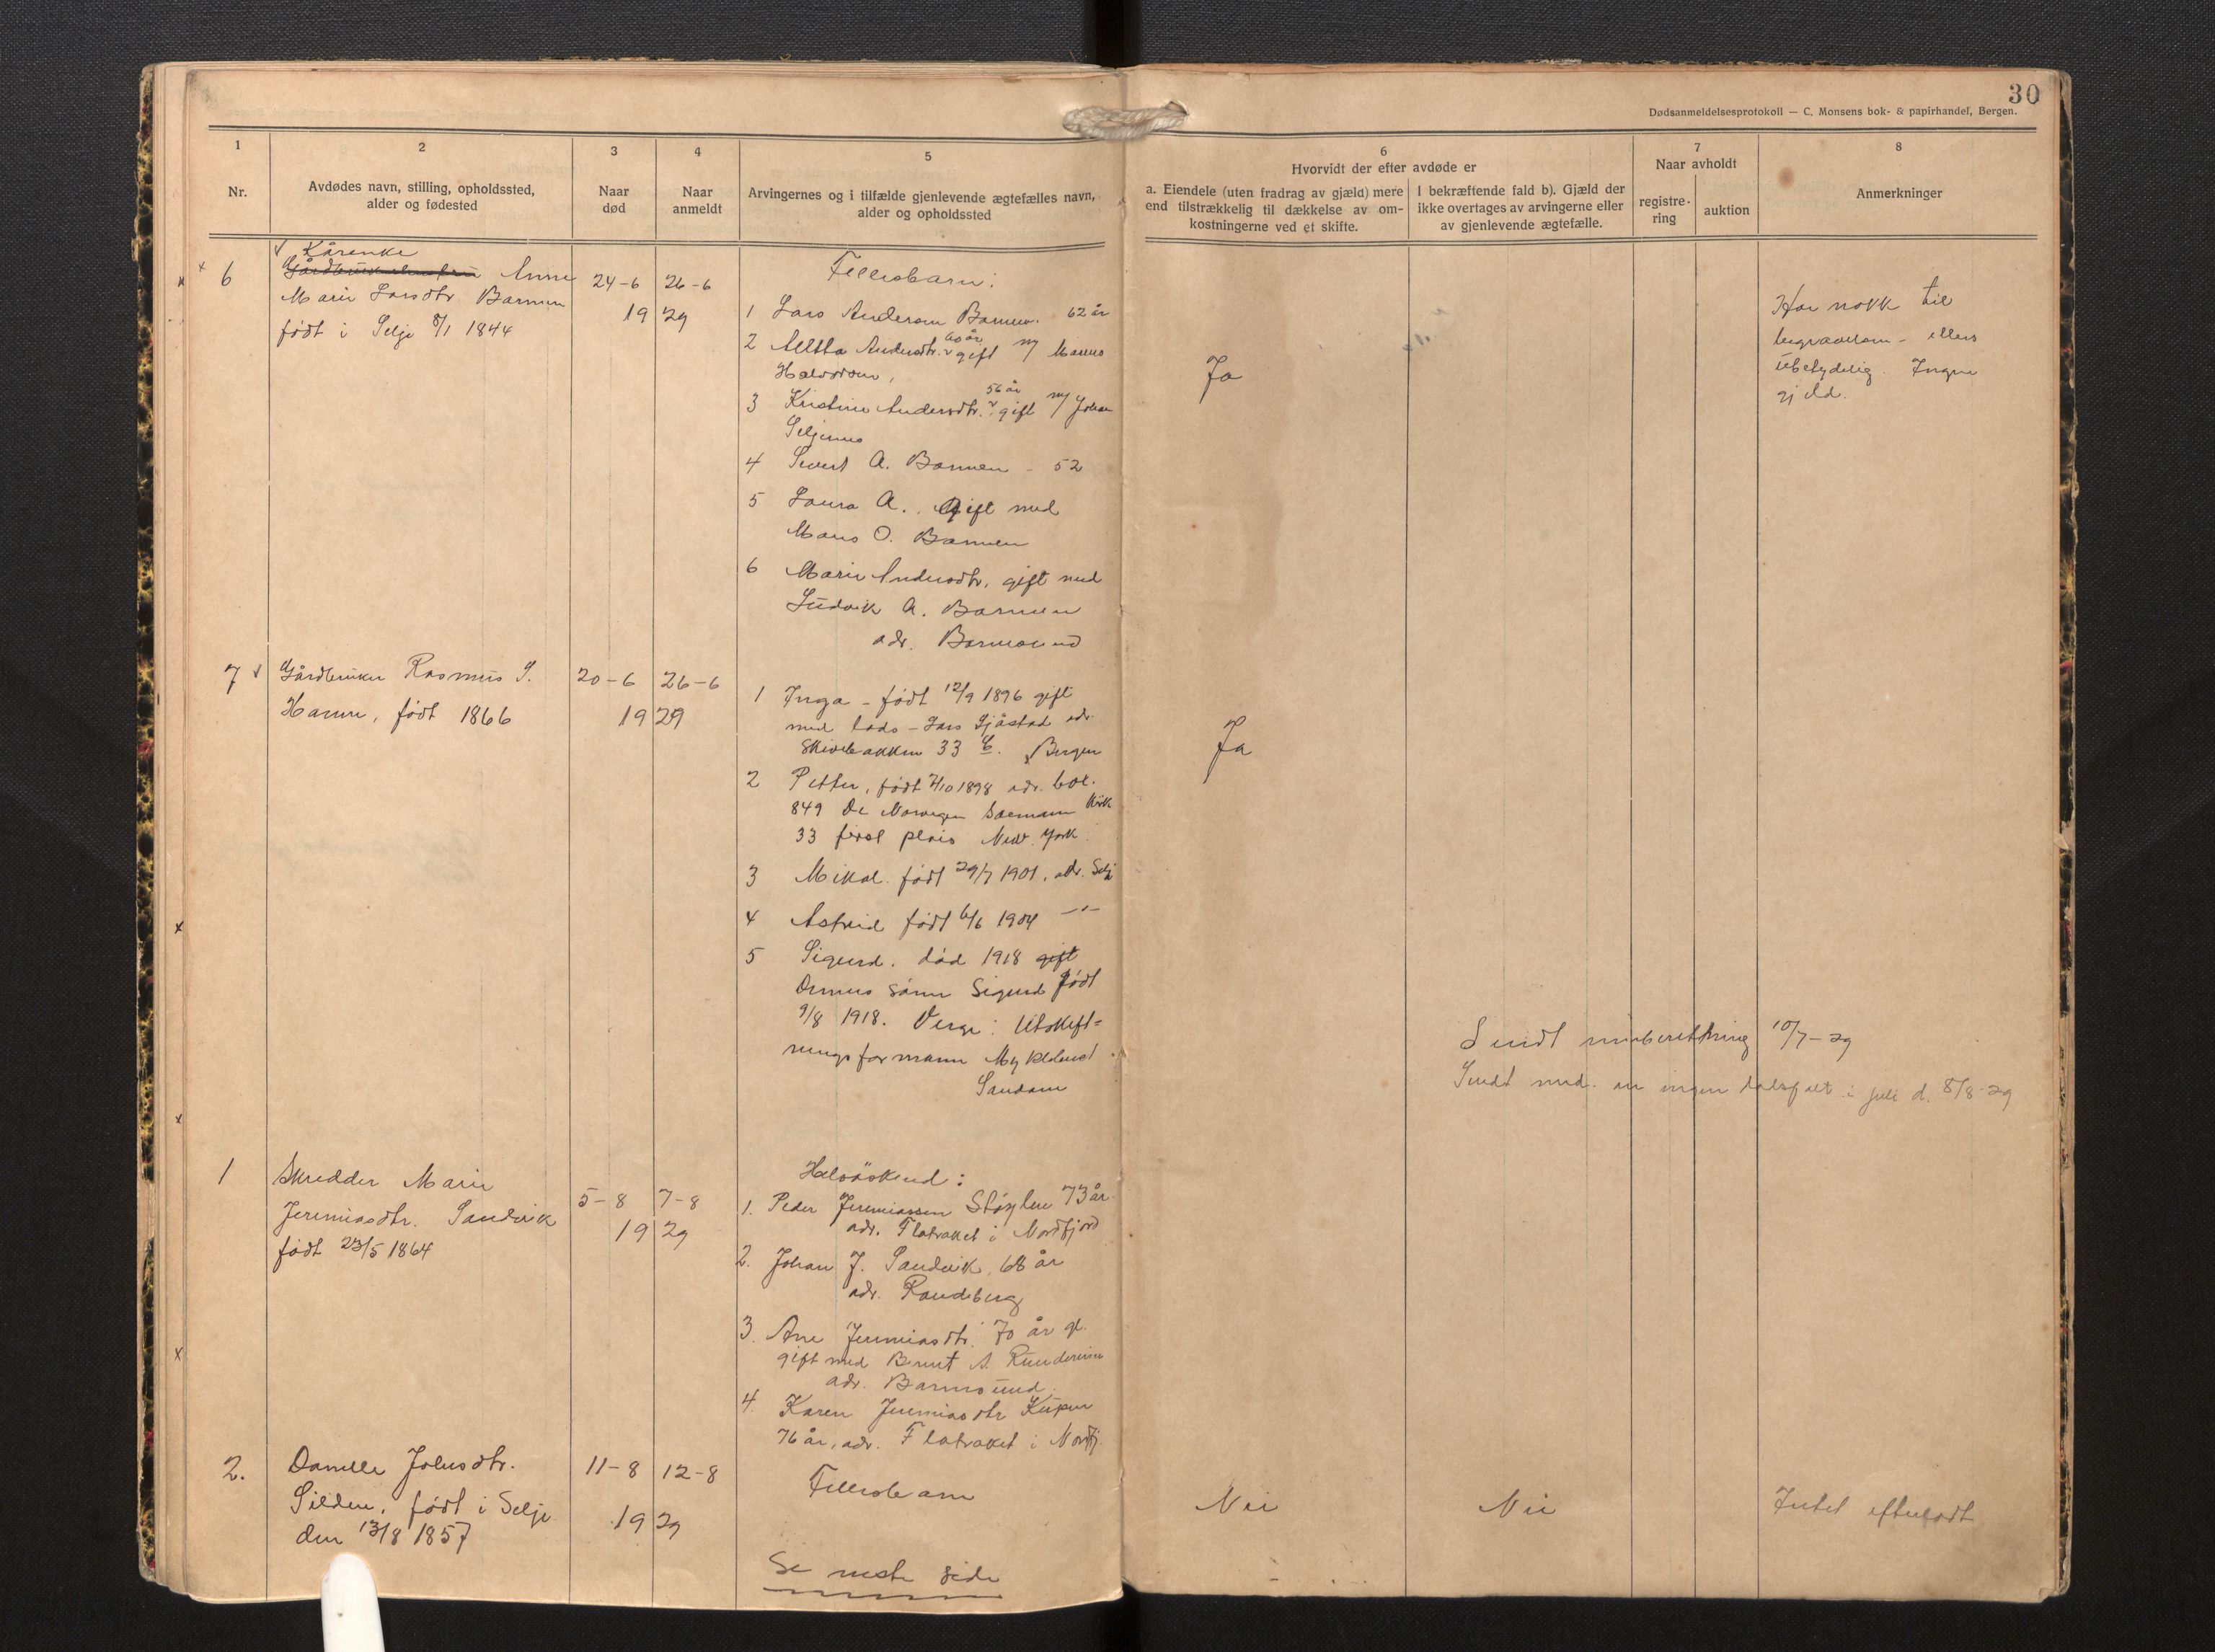 30
Dødsanmeldelsesprotokoll — C. Monsens bok- & papirhandel, Bergen.
1
Nr.
2
Avdødes navn, stilling, opholdssted,
alder og fødested
3
Naar
død
4
Naar
anmeldt
5
Arvingernes og i tilfælde gjenlevende ægtefælles navn,
alder og opholdssted
6
Hvorvidt der efter avdøde er
a. Eiendele (uten fradrag av gjæld) mere
end tilstrækkelig til dækkelse av om-
kostningerne ved et skifte.
I bekræftende fald b). Gjæld der
ikke overtages av arvingerne eller
av gjenlevende ægtefælle.
7
Naar avholdt
registre-
ring
auktion
8
Anmerkninger
Kårenke
6 Anne
Marie Larsdtr. Barmen
født i Selje 8/1 1844
24-6 26-6
19 29
Fellesbarn:
1 Lars Andersen Barmen. 62 år
2 Andersdtr. 60 år gift m/
Halvorsen,
3 Kristine Andersdtr. 56 år gift m/ Johan
4 Sivert A. Barmen - 52
5 Laura A. Gift med
Mons O. Barmen
6 Marie Andersdtr. gift med
Ludvik A. Barmen
adr. Barmsund
Ja
Har nokk til
begravelsen - ellers
ubetydelig. Ingen
gjeld.
7 Gårdbruker Rasmus S.
Hamre, født 1866
20-6 26-6
19 29
1 Inga - født 12/9 1896 gift
med lods - Lars Sjåstad adr.
Skivebakken 33 Bergen
2 Petter, født 7/10 1898 adr. box.
849 De Norwegen Soemann Kirk
33 first plais New York
3 Mikal. født 29/7 1901. adr. Selje
4 Astrid født 6/6 1904 -"-
5 Sigurd. død 1918 gift
Dennes sønn Sigurd født
9/8 1918. Verge: Utskift-
ningsformann Myklebust
Sandane
Ja
Sendt innberetning 10/7-29
Sendt med. om ingen dødsfall i juli d. 8/8-29
1 Skredder Marie
Jeremiasdtr. Sandvik
født 23/5 1864
5-8 7-8
19 29
Halvsøskend:
1. Peder Jeremiassen Støylen 73 år
adr. Flatraket i Nordfjord
2. Johan J. Sandvik, 68 år
adr. Randeberg
3. Ane Jeremiasdtr. 70 år gl.
gift med Bernt A.
adr. Barmsund.
4. Karen Jeremiasdtr
76 år, adr. Flatraket i Nordfj
2. Danelle Johnsdtr.
Silden, født i Selje
den 13/8 1857
11-8 12-8
19 29
Fellesbarn
Se neste side
Nei Nei
Intet efterladt